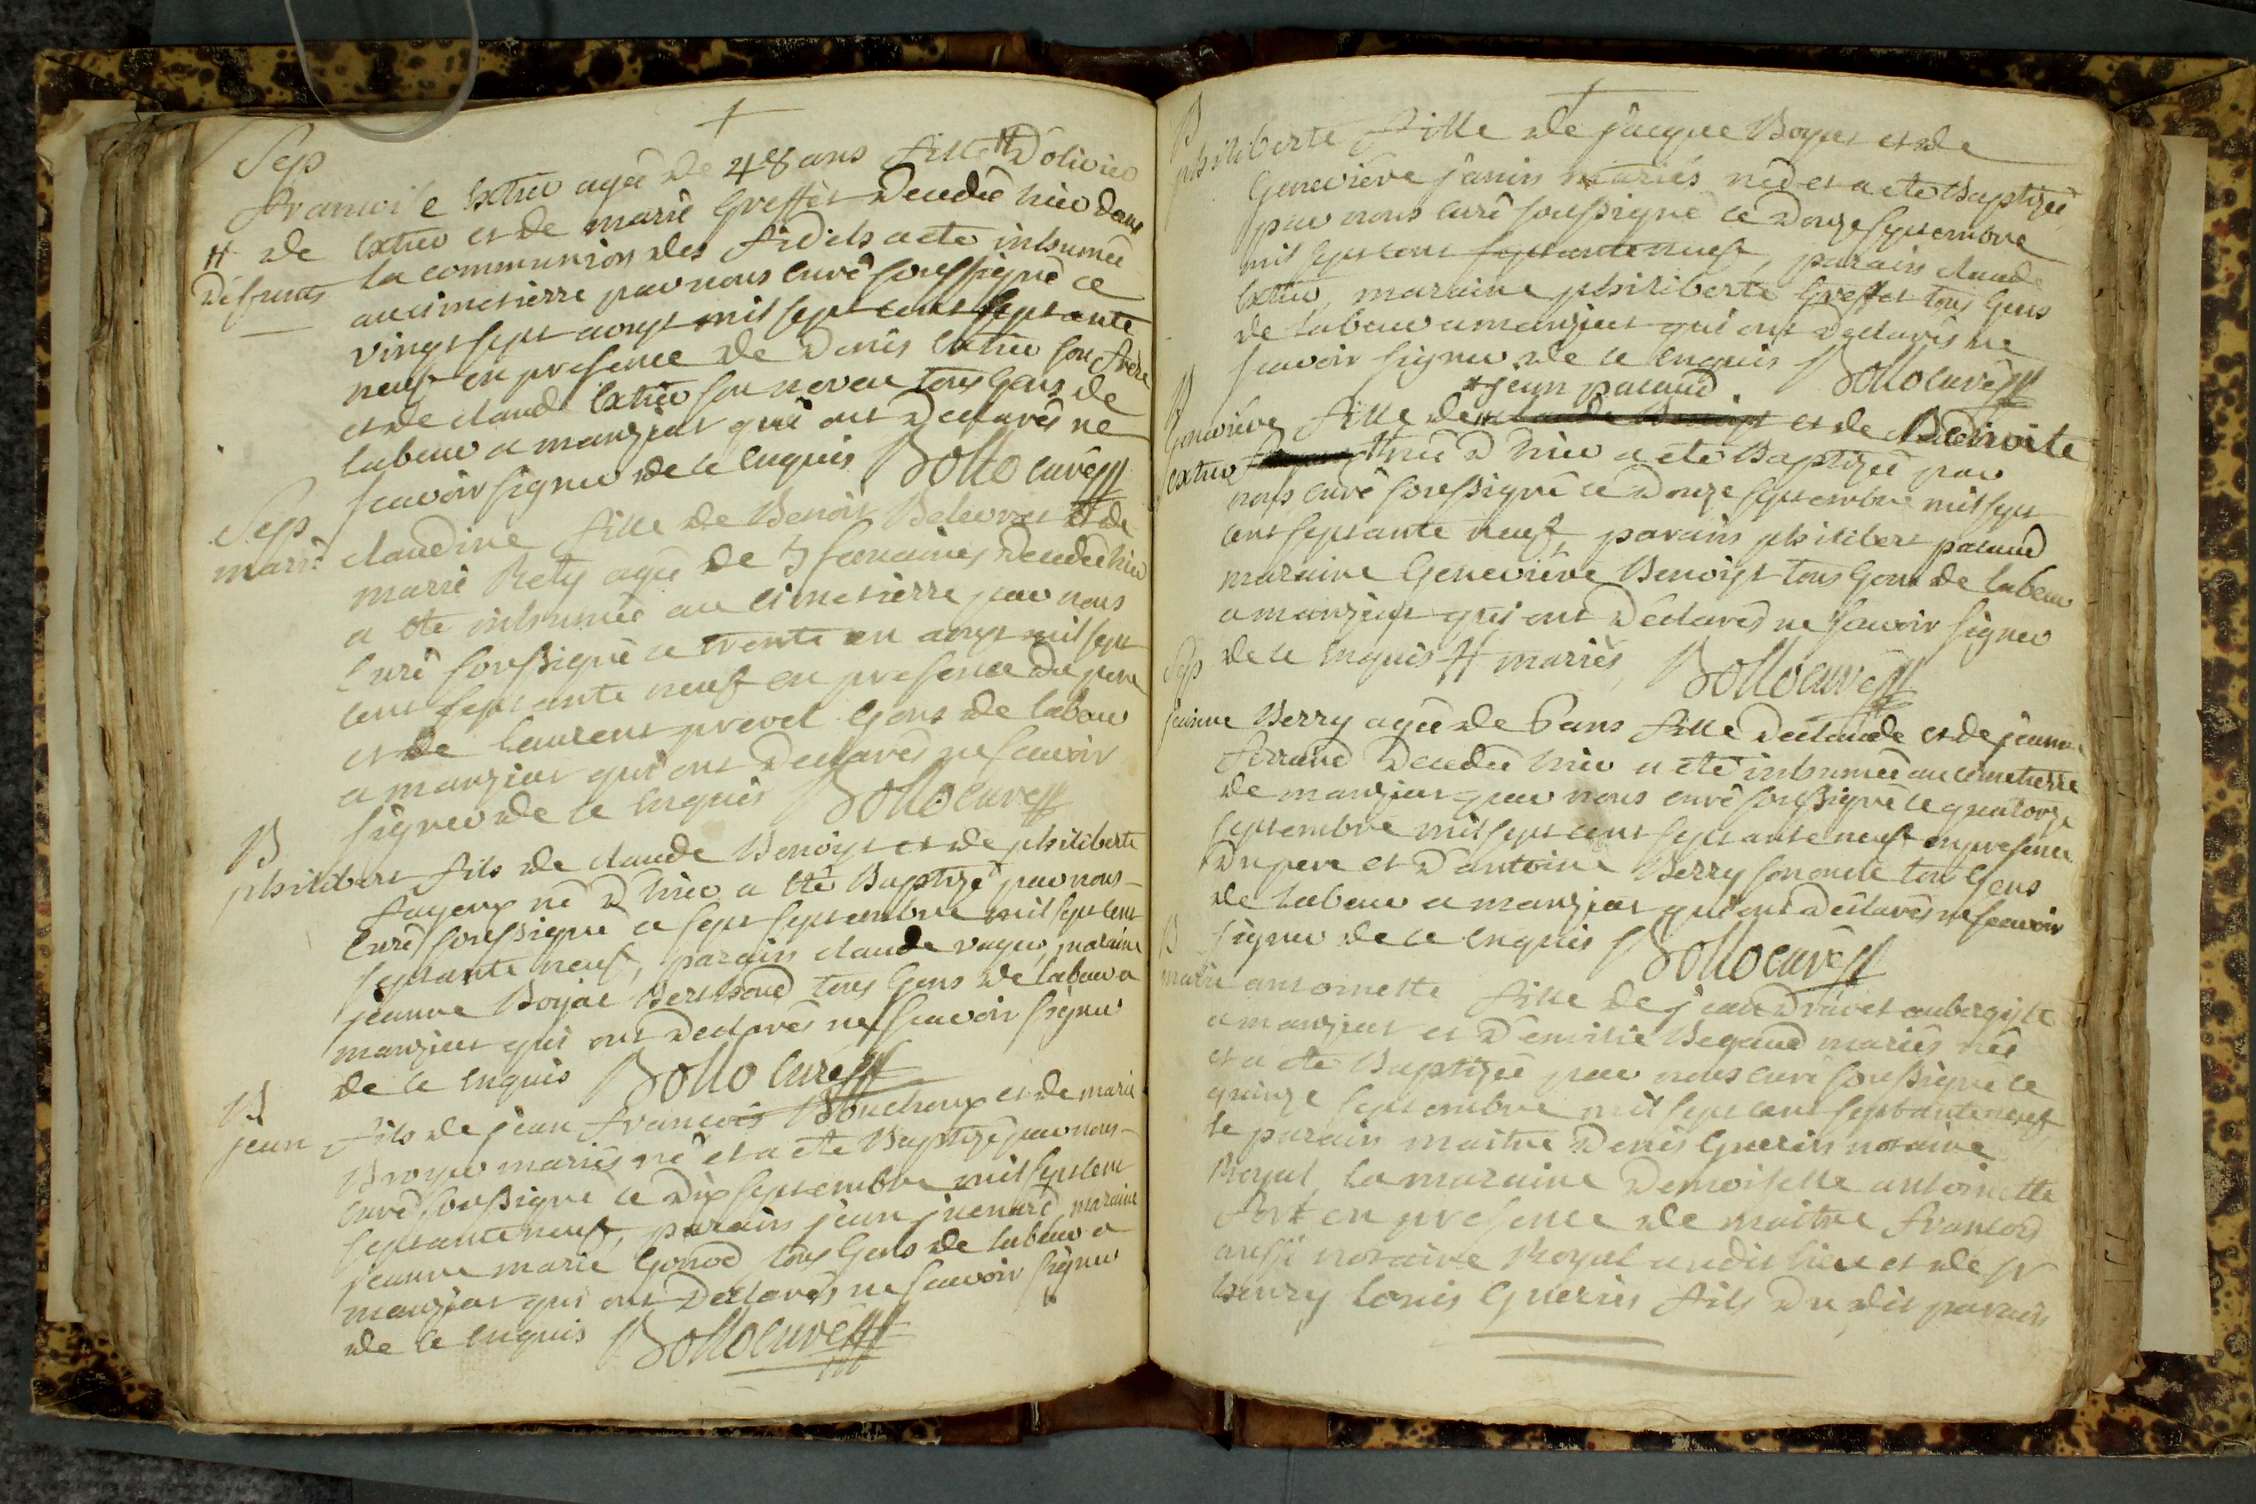 Sep
Francoise Extier agée de 48 ans fille # d'olivier
# de Extier et de marie Greffet Decedée hier dans
Defunts la communion des fidels a ete inhumée
au cimetierre par nous curé soussigné ce
vingt sept aoust mil sept cent septante
neuf en presence de Denis Extier son frere
et de claude Extier son neveu tous Gens de
labeur a manziat qui ont Declarés ne
scavoir signer de ce Enquis Bollo curé
Sep
marie claudine fille de Benoit Belouzet et de
marie Rety agée de 5 semaines Decedée hier
a ete inhumée au cimetierre par nous
Curé soussigné ce trente un aoust mil sept
cent septante neuf en presence du pere
et de laurent prevel Gens de labeur
a manziat qui ont Declarés ne scavoir
signer de ce Enquis Bollo curé
B
philibert fils de claude Benoist et de philiberte
fayeux né D'hier a ete Baptizé par nous
Curé soussigné ce sept septembre mil sept cent
septante neuf, parain claude voyer, maraine
jeanne Boyat Berthoud tous Gens de labeur a
manziat qui ont Declarés ne scavoir signer
de ce Enquis Bollo Curé
B
jean fils de jean francois Bouchoux et de marie
Broyer mariés né et a ete Baptizé par nous
curé soussigné ce Dix septembre mil sept cent
septante neuf, parain jean juenard, maraine
jeanne marie Gonod tous Gens de labeur a
manziat qui ont Declarés ne scavoir signer
de ce Enquis Bollo curé
B
philiberte fille de jacque Boyat et de
Genevieve janin mariés née et a ete Baptizée
par nous curé soussigné ce Douze septembre
mil sept cent septante neuf, parain claude
Extier, maraine philiberte Greffet tous Gens
de labeur a manziat qui ont Declarés ne
scavoir signer de ce Enquis Bollo curé
B
* jean pacaud
Genevieve fille de * claude Benoist et de Benoite
Extier # née D'hier a eté Baptizée par
nous curé soussigné ce Douze septembre mil sept
cent septante neuf parain philibert pacaud
maraine Genevieve Benoist tous Gens de labeur
a manziat qui ont Declarés ne scavoir signer
de ce Enquis # mariés, Bollo curé
Sep
jeanne Berry agée de 6 ans fille De claude et de jeanne
ferrand Decedée hier a eté inhumée au cimetierre
de manziat par nous curé soussigné le quatorze
septembre mil sept cent septante neuf en presence
Du pere et D'antoine Berry son oncle tous Gens
de labeur a manziat qui ont Declarés ne scavoir
signer de ce Enquis Bollo curé
B
marie antoinette fille de jean Druvet aubergiste
a manziat et D'emilie Begaud mariés née
et a ete Baptizée par nous curé soussigné ce
quinze septembre mil sept cent septante neuf,
le parain maitre Denis Guerin notaire
Royal la maraine Demoiselle antoinette
fort en presence de maitre francois
aussi notaire Royal audit lieu et de sr
henry louis Guerin fils du dit parain